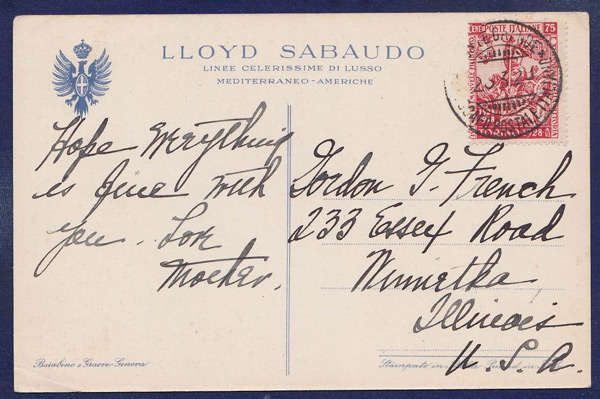 LLOYD SABAUDO
LINEE CELERISSIME DI LUSSO
MEDITERRANEO - AMERICHE
POSTE ITALIANE 75
Hope Everything
is fine with
you. Love
Mother.
Gordon G. French
233 Essex Road
Winnetka,
Illinois
U.S.A.
Barabino & Graeve - Genova
Stampato in